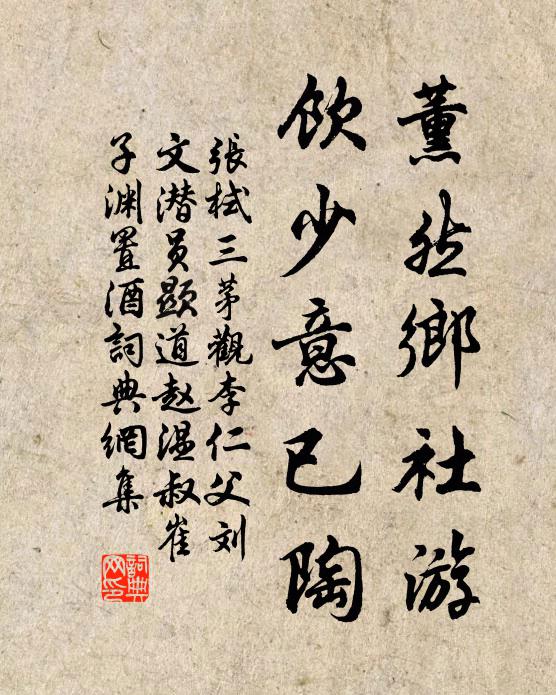 薰然鄉社游
飲少意已陶
張栻三茅觀李仁父刘
文潜员顯道赵温叔崔
子渊置酒詞典網集
詞典网印